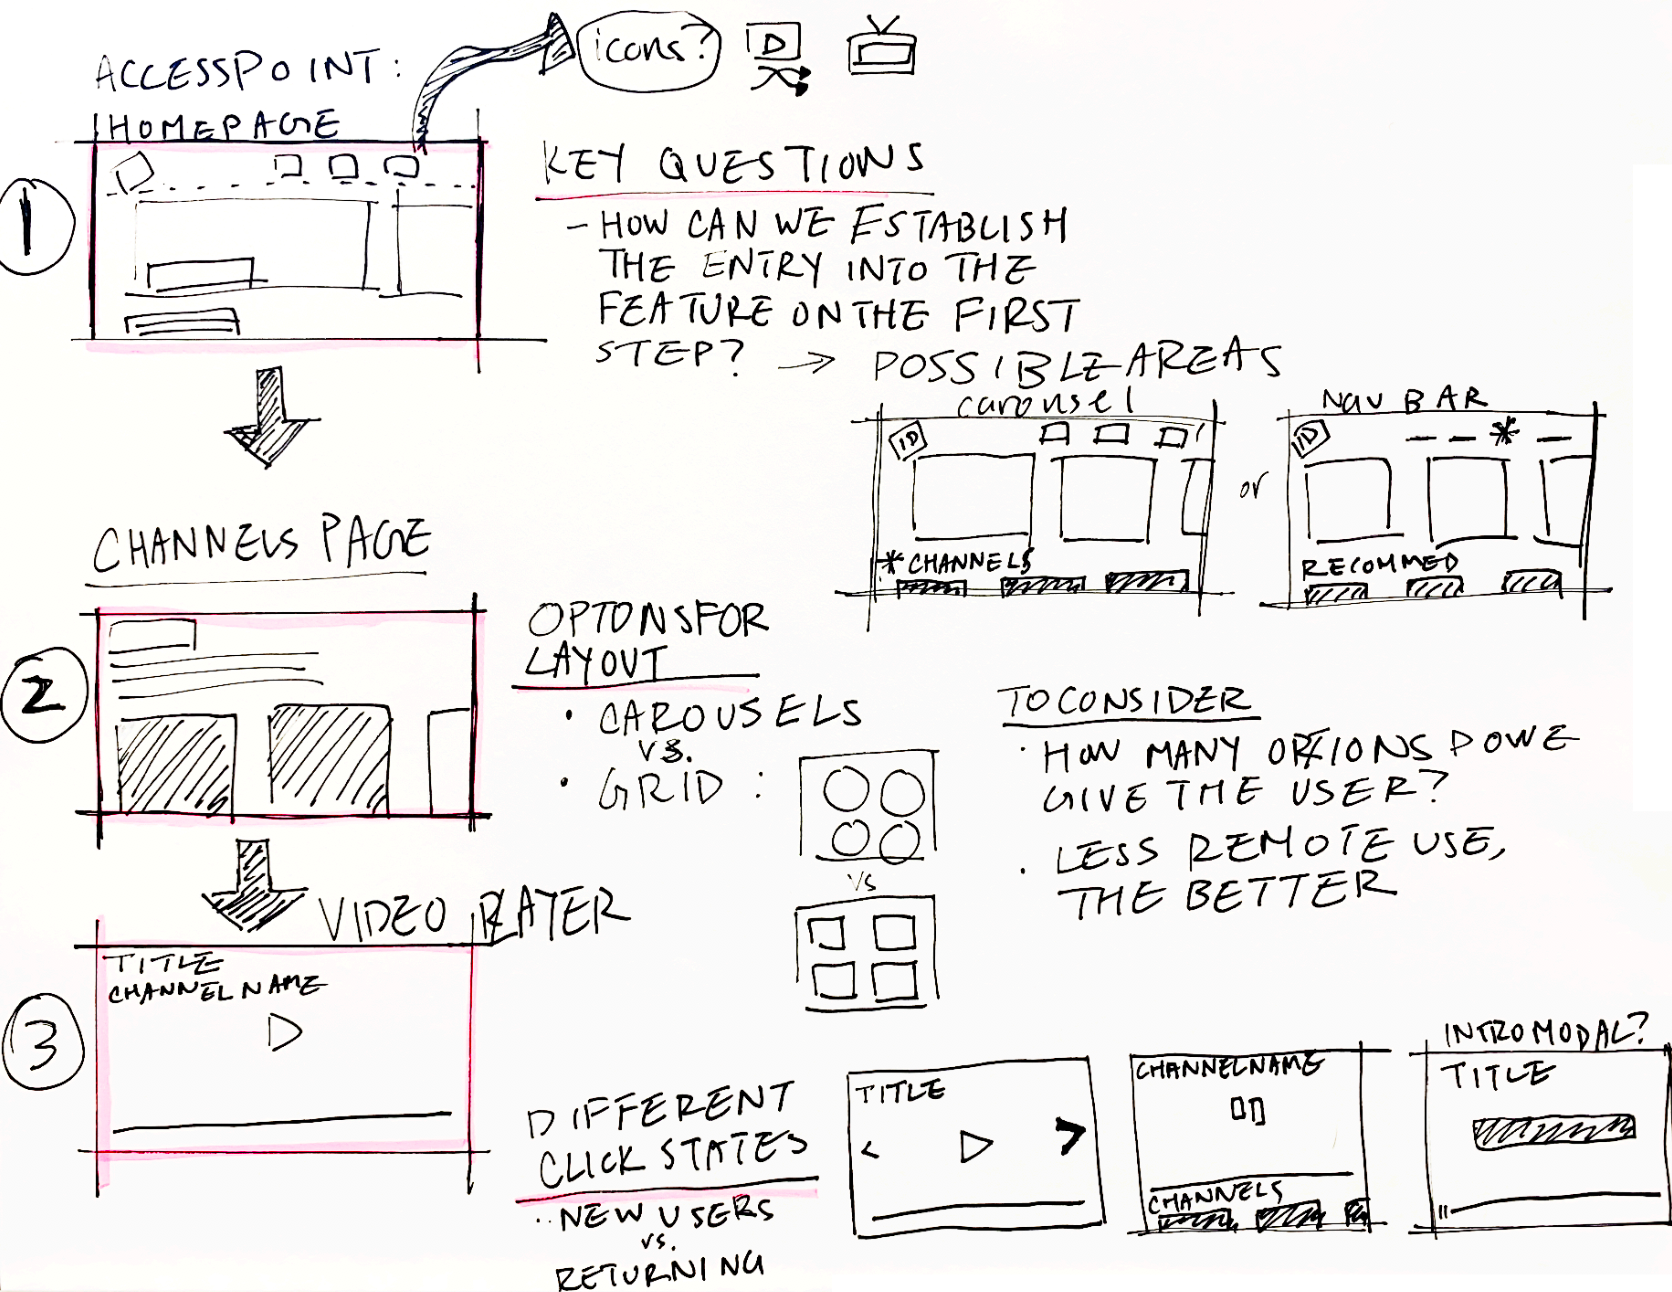 ACCESSPOINT:
HOMEPAGE
icons?
1
KEY QUESTIONS
- HOW CAN WE ESTABLISH
THE ENTRY INTO THE
FEATURE ON THE FIRST
STEP? → POSSIBLE AREAS
carousel
ID
* CHANNELS
or
NAV BAR
ID
*
RECOMMED
CHANNELS PAGE
2
OPTONS FOR
LAYOUT
· CAROUSELS
vs.
· GRID :
vs
TO CONSIDER
· HOW MANY OPTIONS DO WE
GIVE THE USER?
· LESS REMOTE USE,
THE BETTER
VIDEO PLAYER
3
TITLE
CHANNEL NAME
DIFFERENT
CLICK STATES
·· NEW USERS
vs.
RETURNING
TITLE
< >
CHANNEL NAME
CHANNELS
INTRO MODAL?
TITLE